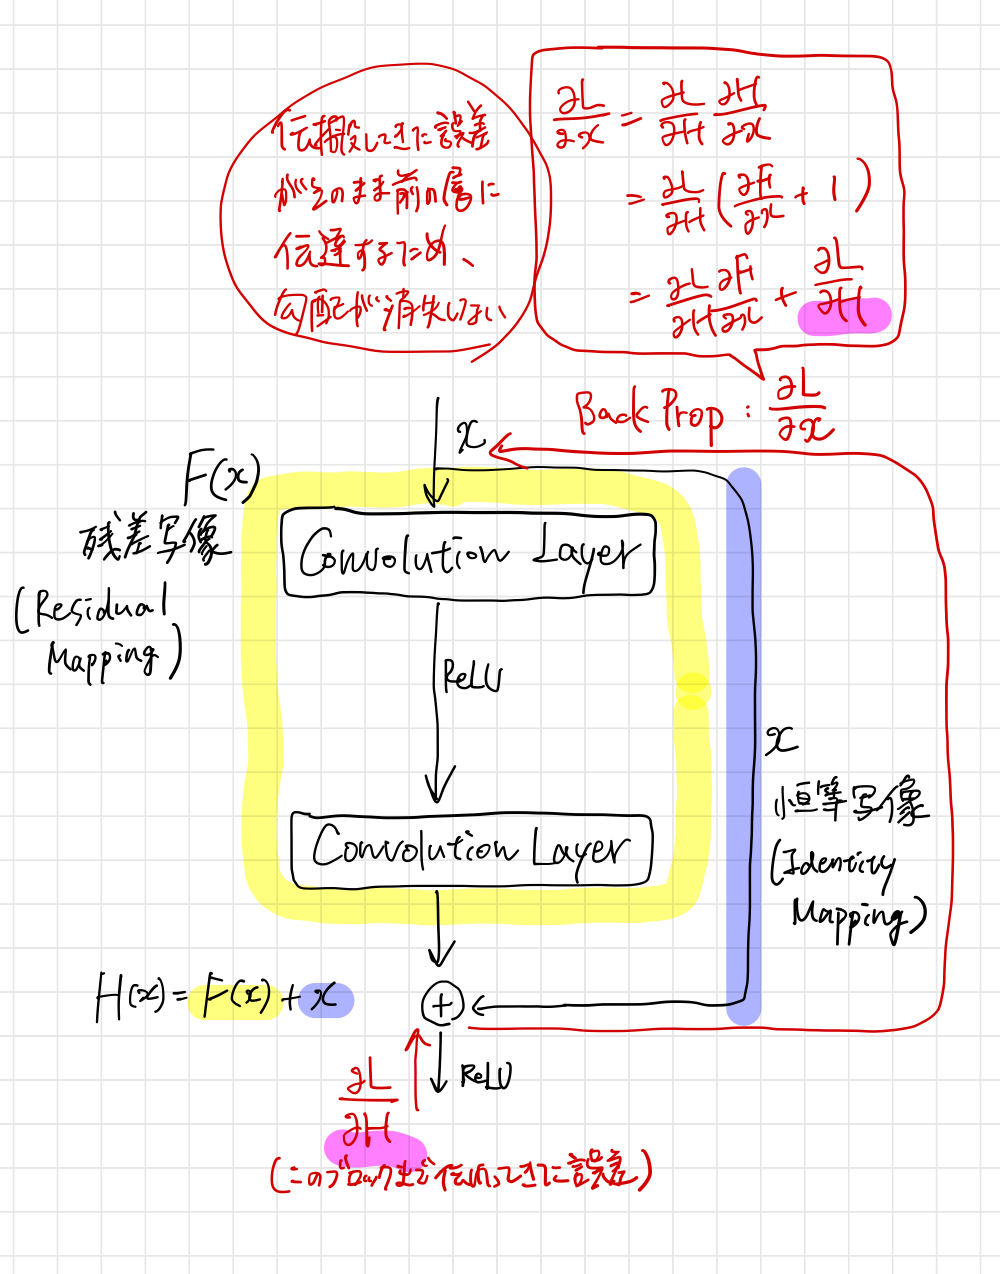 伝搬してきた誤差
がそのまま前の層に
伝達するため、
勾配が消失しない
∂L/∂x = ∂L/∂H ∂H/∂x
= ∂L/∂H (∂F/∂x + 1)
= ∂L/∂H ∂F/∂x + ∂L/∂H
Back Prop : ∂L/∂x
x
F(x)
残差写像
(Residual
Mapping)
Convolution Layer
ReLU
x
恒等写像
(Identity
Mapping)
Convolution Layer
H(x) = F(x) + x
+
ReLU
∂L/∂H
(このブロックまで伝わってきた誤差)